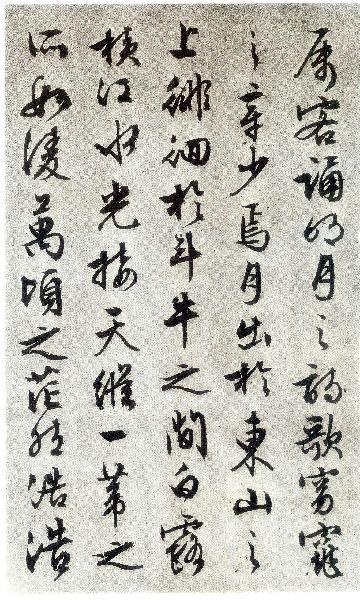 属客誦明月之詩歌窈窕
之章少焉月出於東山之
上徘徊於斗牛之間白露
橫江水光接天縱一葦之
所如凌萬頃之茫然浩浩